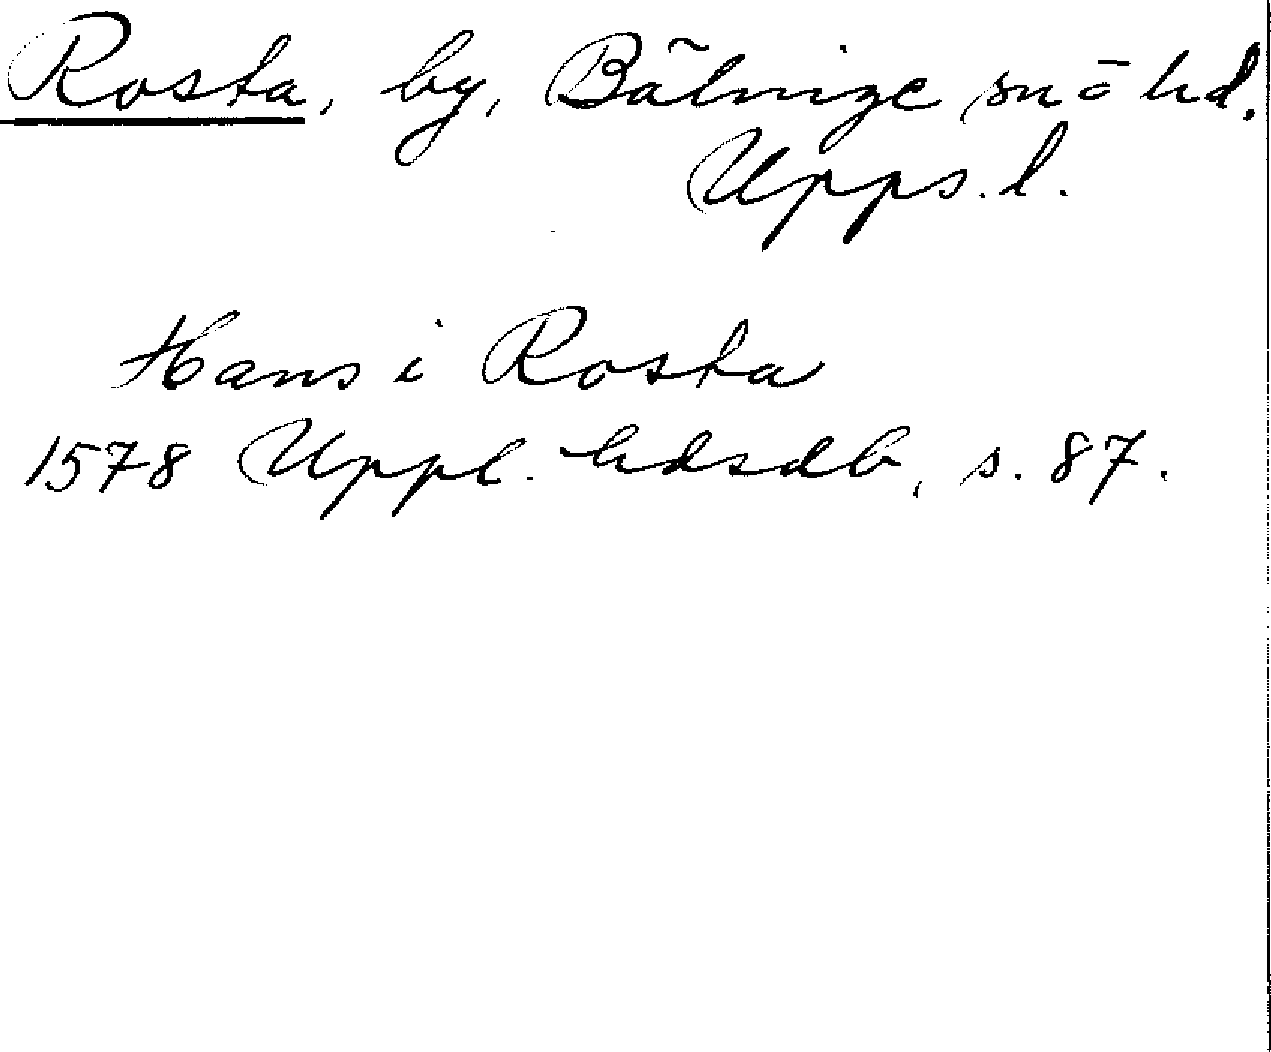 Rosta, by, Bälinge sn o hd.
Upps. l.
Hans i Rosta
1578 Uppl. hdsdb, s. 87.